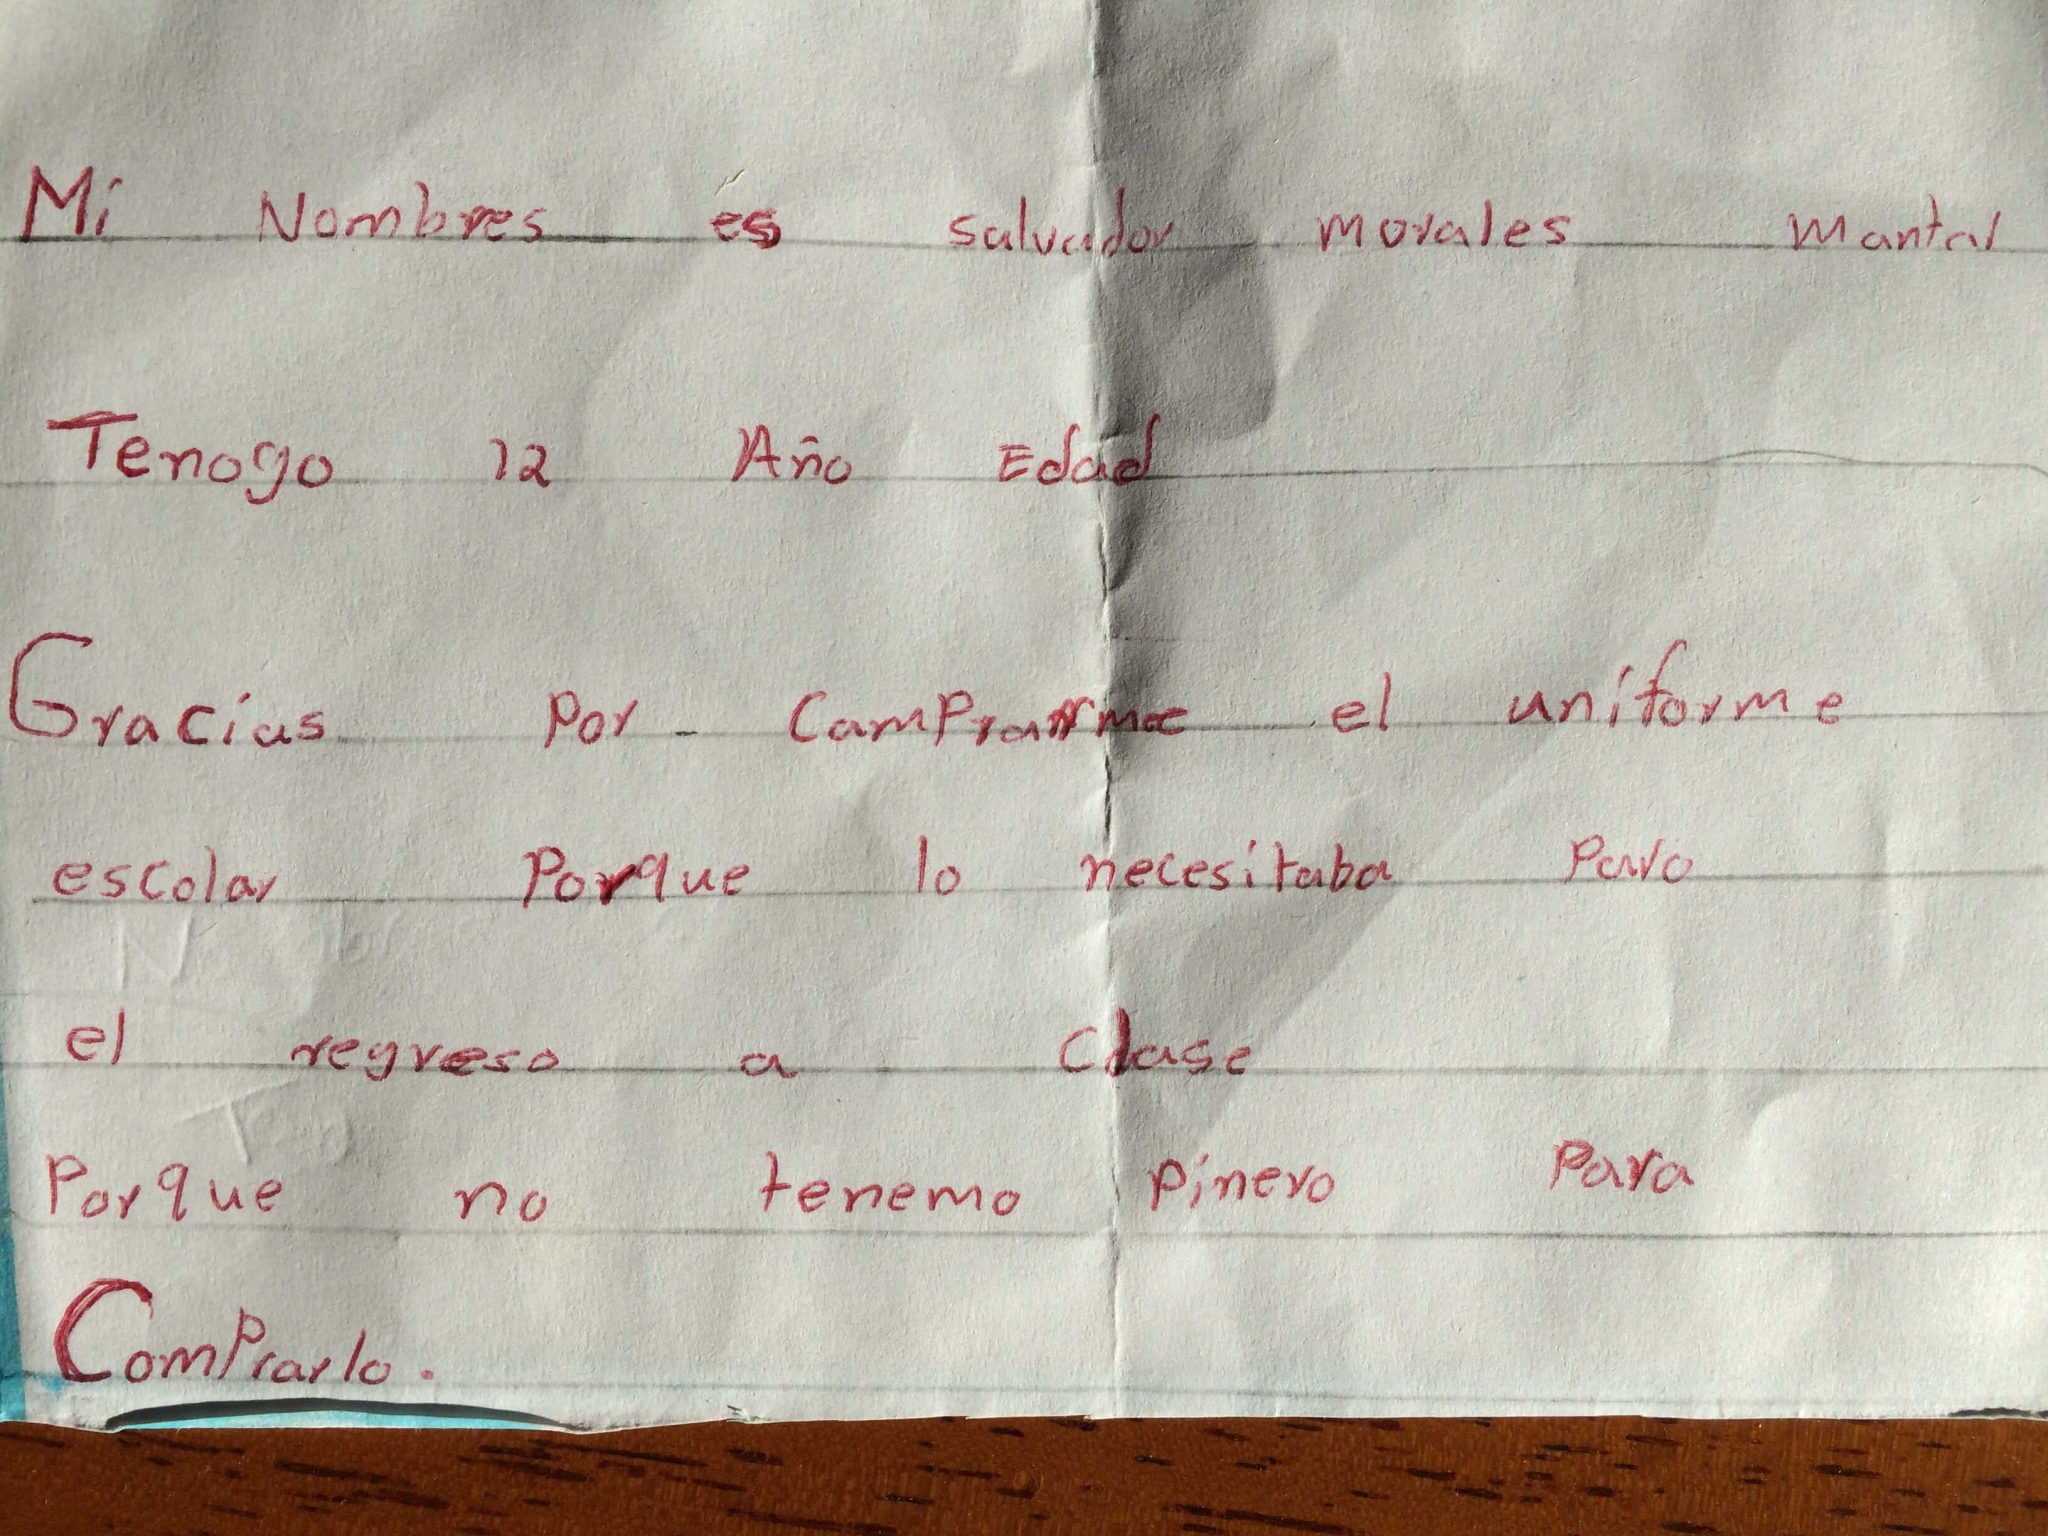 Mi Nombres es salvador morales mantal
Tenogo 12 Año Edad
Gracias por camprarme el uniforme
escolar Porque lo necesitaba Paro
el regreso a clase
Porque no tenemo pinero Para
Comprarlo.